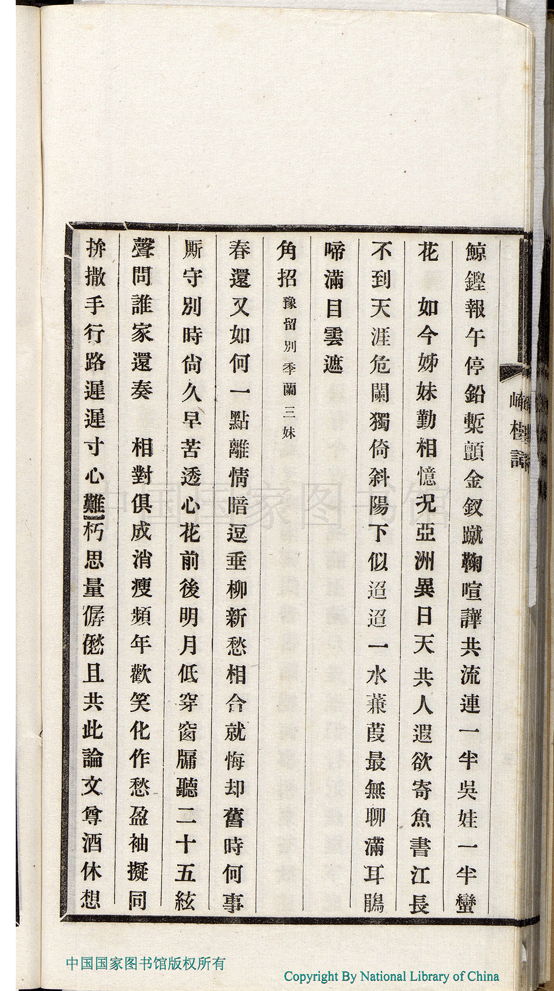 鯨鏗報午停鉛槧顫金釵蹴鞠喧譁共流連一半吳娃一半蠻
花　如今姊妹勤相憶況亞洲異日天共人遐欲寄魚書江長
不到天涯危闌獨倚斜陽下似迢迢一水蒹葭最無聊滿耳鵑
啼滿目雲遮
角招豫留別季蘭三妹
春還又如何一點離情暗逗垂柳新愁相合就悔却舊時何事
厮守別時尙久早苦透心花前後明月低穿窗牖聽二十五絃
聲問誰家還奏　相對俱成消瘦頻年歡笑化作愁盈袖擬同
拚撒手行路遲遲寸心難朽思量僝僽且共此論文尊酒休想
中国国家图书馆
中国国家图书馆版权所有
Copyright By National Library of China